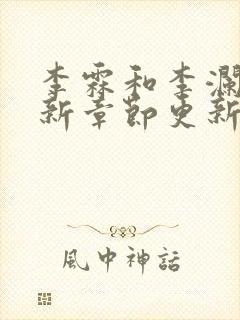 李霖和李瀾
新章節更新
風中神話